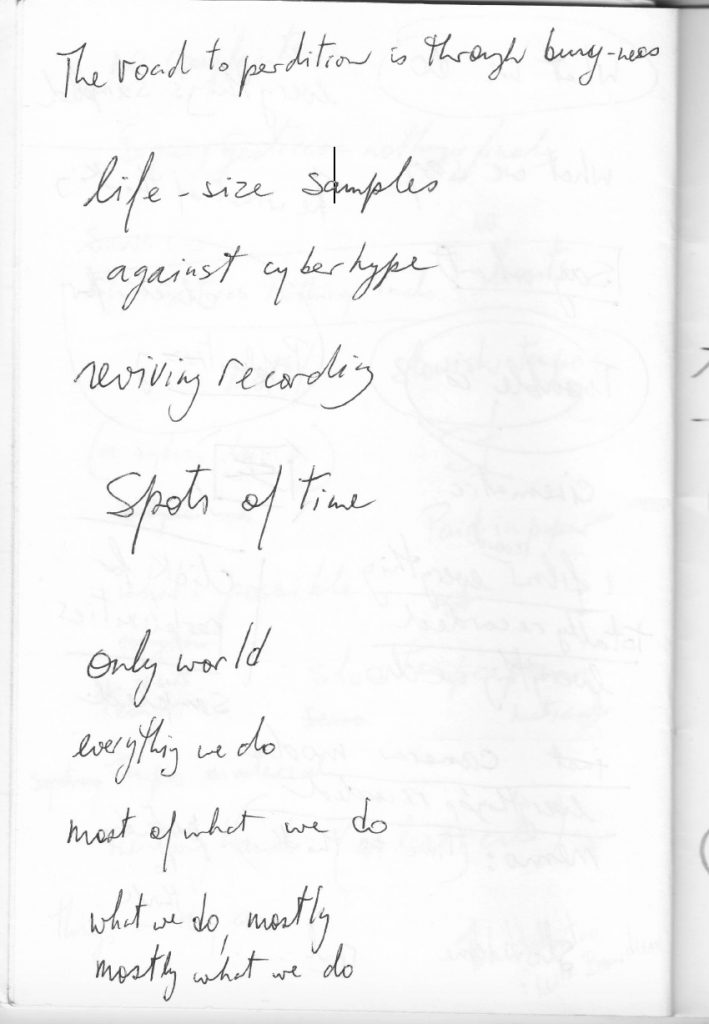 The road to perdition is through busy-ness
life-size samples
against cyberhype
reviving recording
Spots of time
only world
everything we do
most of what we do
what we do, mostly
mostly what we do